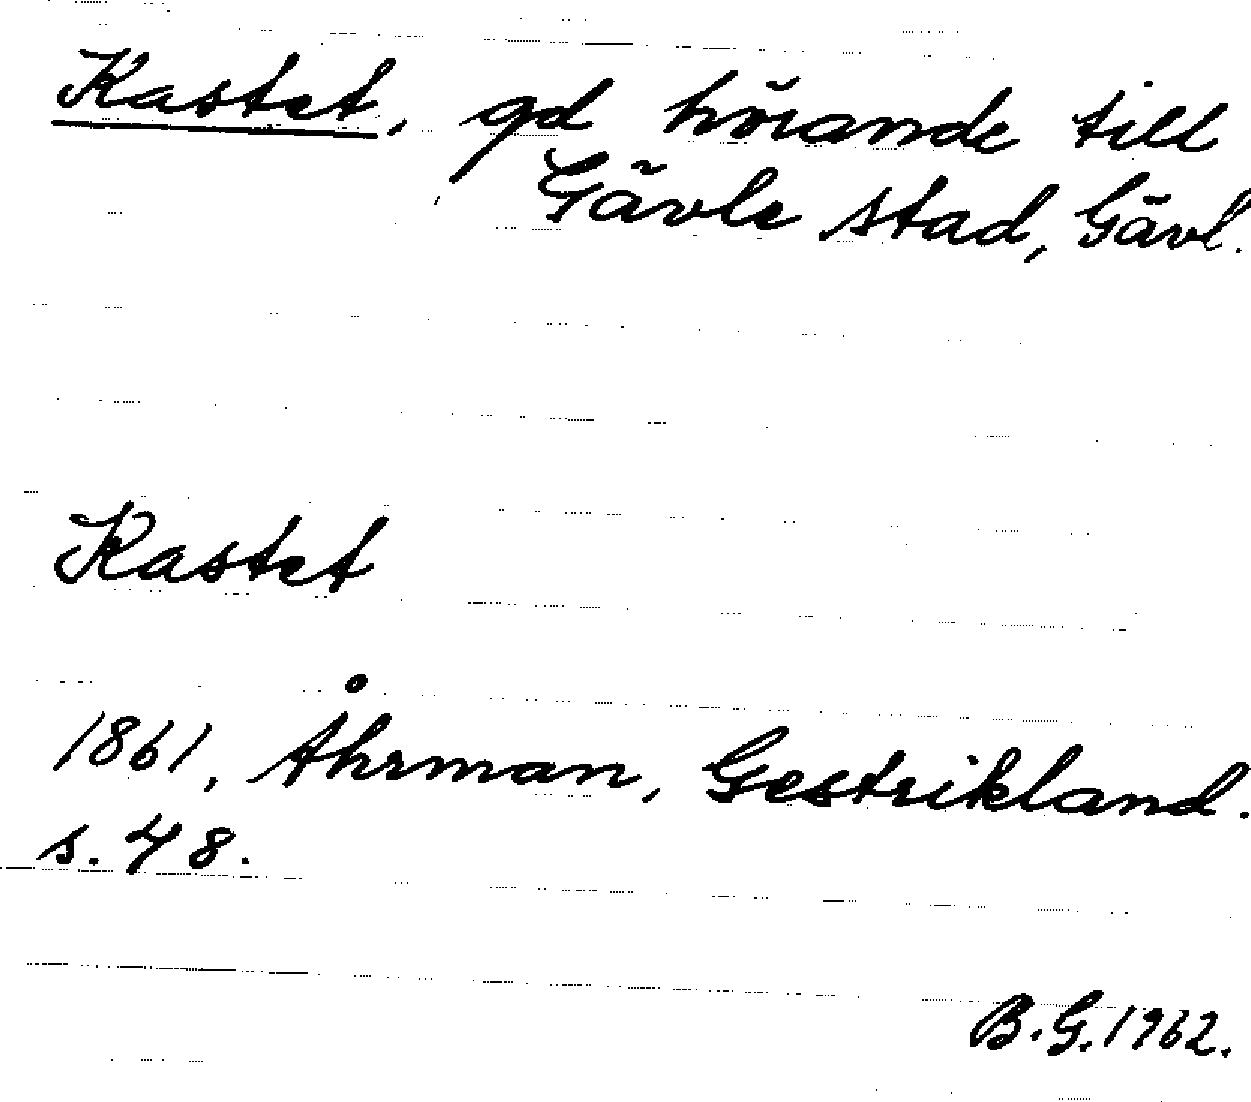 Kastet, gd hörande till
Gävle stad, Gävl.
Kastet
1861, Åhrman, Gestrikland.
s. 48.
B.G. 1962.